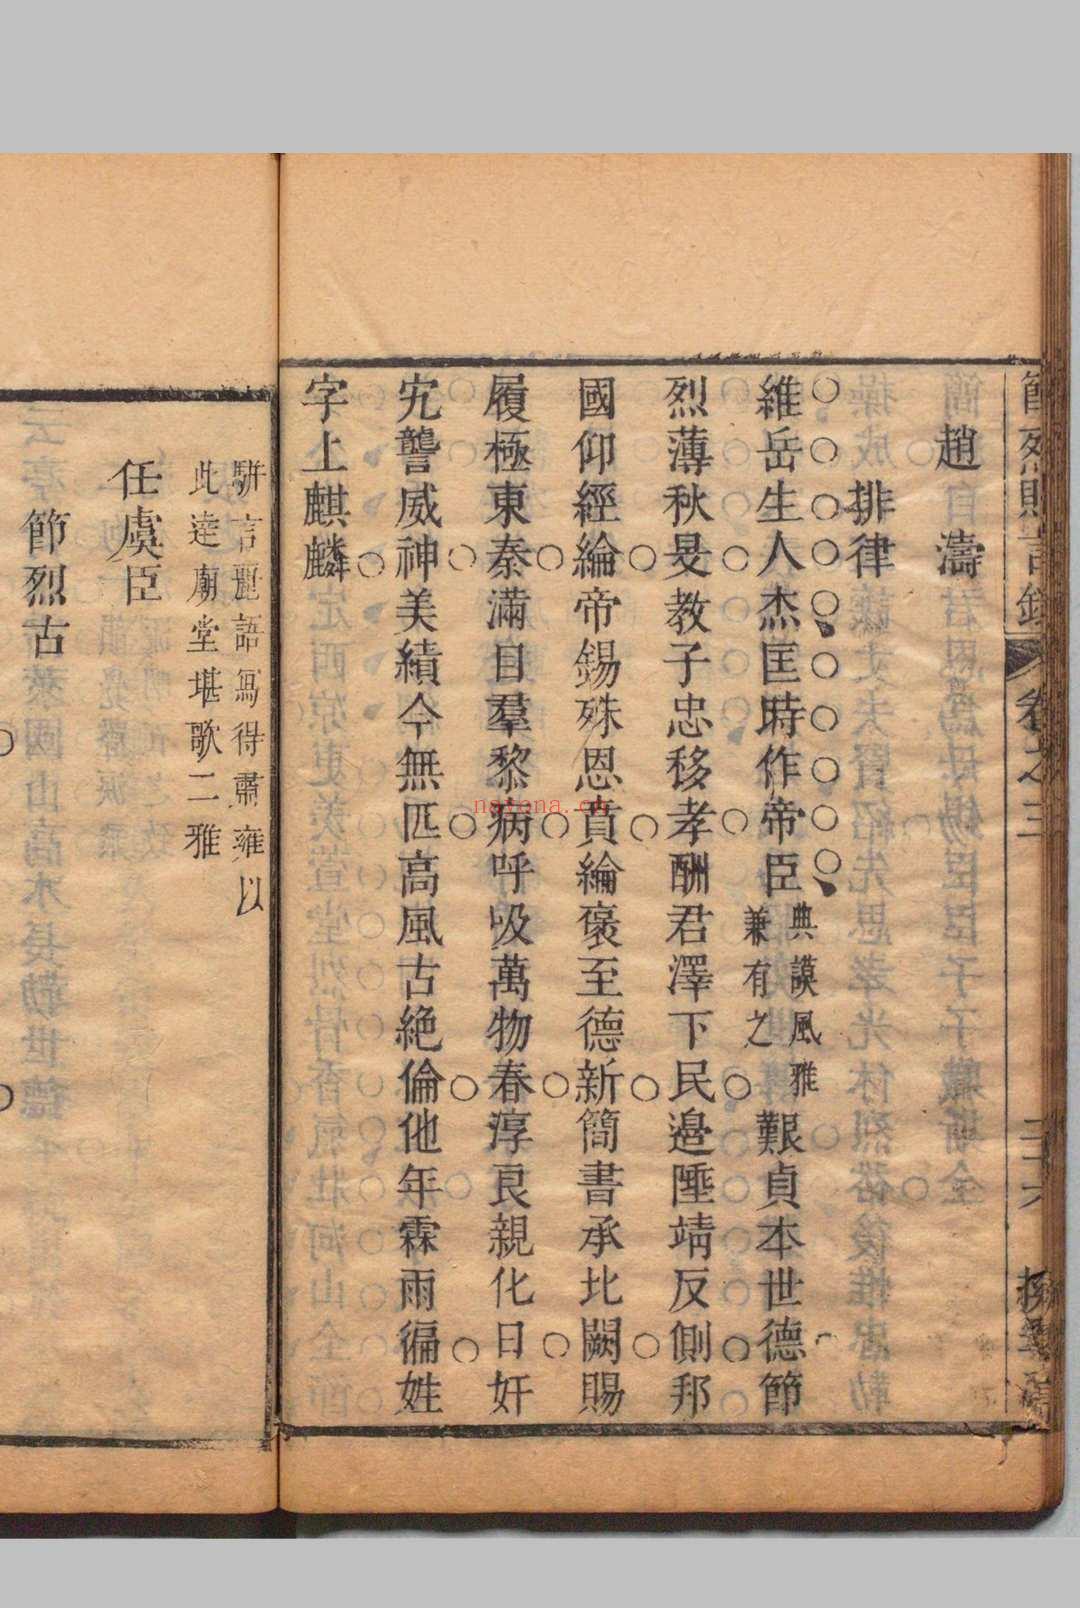 趙濤
排律
維岳生人杰匡時作帝臣典謨風雅兼有之艱貞本世德節
烈薄秋旻教子忠移孝酬君澤下民邉陲靖反側邦
國仰經綸帝錫殊恩賁綸褒至德新簡書承北闕賜
履極東秦滿目羣黎病呼吸萬物春淳良親化日奸
宄讋威神美績今無匹高風古絶倫他年霖雨徧姓
字上麒麟
駢言麗語寫得肅雍以
此達廟堂堪歌二雅
任虞臣
節烈古
nayona.cn